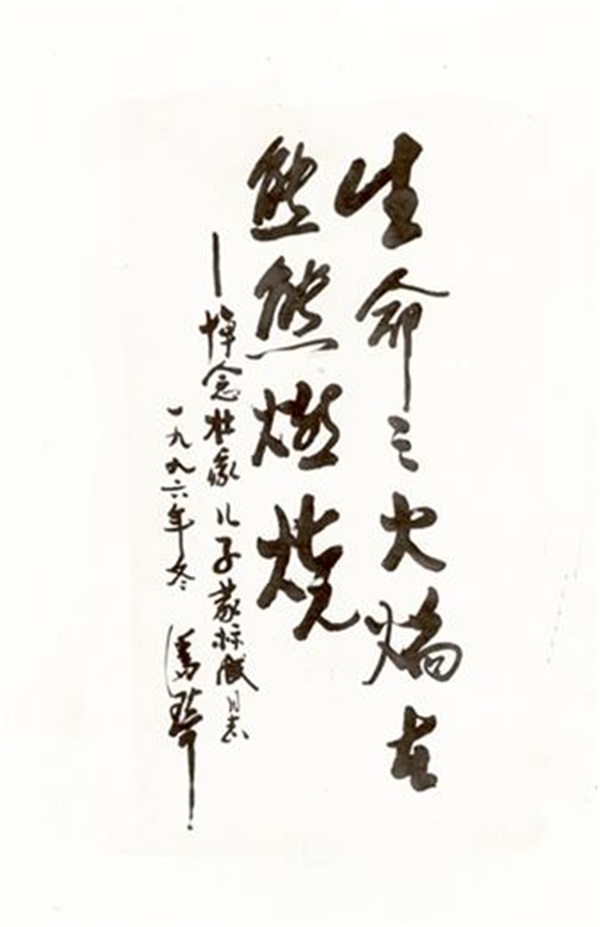 生命之火焰在
熊熊燃烧
—悼念壮家儿子蒙标成同志
一九九六年冬